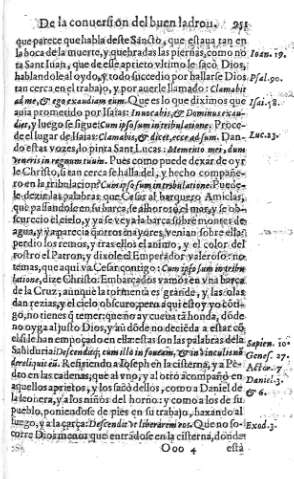 De la conversion del buen ladron. 951
que parece que habla deste Sancto, que estaua tan en
la boca de la muerte, y quebradas las piernas, como no
ta San Iuan, que de este aprieto vltimo le sacò Dios,
hablandole al oydo, y todo succedio por hallarse Dios
tan cerca en el trabajo, y por auerle llamado: Clamabit
ad me, & ego exaudiam eum. Que es lo que diximos que
auia prometido por Isaias: Inuocabis, & Dominus exau-
diet, y luego se sigue: Cum ipso sum in tribulatione. Procede
del lugar de Isaias: Clamabis, & dicet, ecce adsum. Dan-
do estas vozes, lo pinta Sant Lucas: Memento mei, dum
veneris in regnum tuum. Pues como puede dexar de oyr
le Christo, si tan cerca se halla del, y hecho compañe-
ro en la tribulacion? Cum ipso sum in tribulatione. Puede-
le dezir las palabras que Cesar al barquero Amiclas,
que passandole en su barca, se alborotò el mar, y se ob-
scurecio el cielo, y ya se veya la barca sobre montes de
agua, y ya parecia que otros mayores, venian sobre ella:
perdio los remos, y tras ellos el animo, y el color del
rostro el Patron, y dixole el Emperador valeroso: no
temas, que aqui va Cesar contigo: Cum ipso sum in tribu
latione, dize Christo. Embarcados vamos en vna barca
de la Cruz, aunque la tormenta es grande, y las olas
dan rezias, y el cielo obscuro, pero aqui estoy yo conti-
go, no tienes q̃ temer: que no ay cueua tã honda, dõde
no oyga al justo Dios, y aũ dõde no deciẽda a estar cõ
el si le han empoçado en ella: estas son las palabras de la
Sabiduria: Descenditq́; cum illo in foueam, & in vinculis nõ
dereliquit eũ. Refiriendo a Ioseph en la cisterna, y a Pe-
dro en las cadenas, que al vno, y al otro acompañó en
aquellos aprietos, y los sacó dellos, como a Daniel de
la leonera, y a los niños del horno: y como a los de su
pueblo, poniendose de pies en su trabajo, baxando al
fuego, y a la çarça: Descendi vt liberarem eos. Que no so-
corre Dios menos que entrandose en la cisterna, donde
Ooo 4 està
Ioan. 19.
Psal. 90.
Isai. 58.
Luc. 23.
Sapien. 10.
Genes. 37.
Actor. 7
Daniel. 3.
& 6.
Exod. 3.